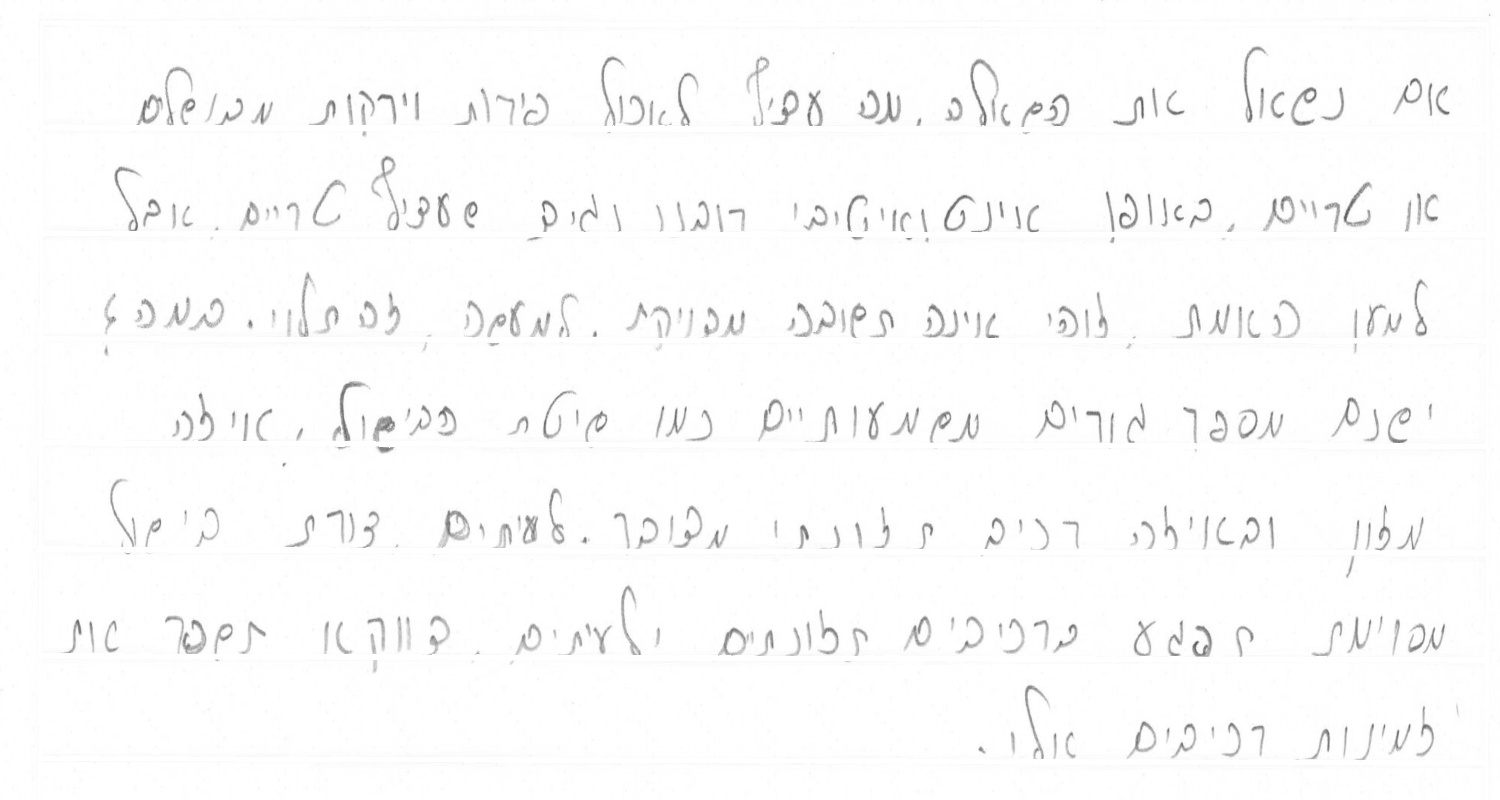 אם נשאל את השאלה, מה עדיף לאכול פירות וירקות מבושלים
או טריים, באופן אינטואיטיבי רובנו נגיב שעדיף טריים, אבל
למען האמת, זוהי אינה תשובה מדויקת. למעשה, זה תלוי. במה?
ישנם מספר גורמים משמעותיים כמו שיטת הבישול, איזה
מזון ובאיזה רכיב תזונתי מדובר. לעיתים, צורת בישול
מסוימת תפגע ברכיבים תזונתיים ולעיתים, דווקא תשפר את
זמינות רכיבים אלו.